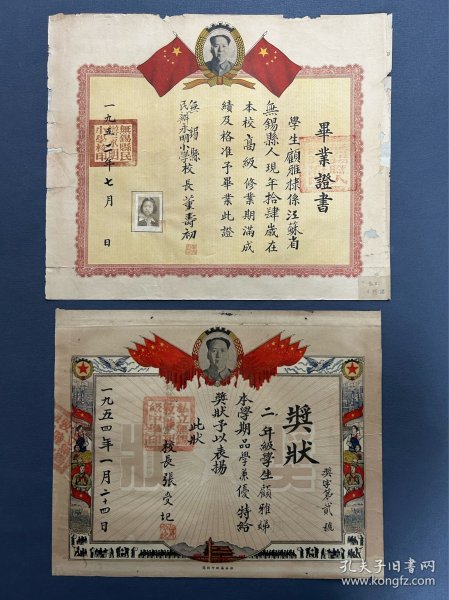 畢業證書
學生顧雅棣係江蘇省
無錫縣人現年拾肆歲在
本校高級修業期滿成
績及格准予畢業此證
無錫縣
民辦永明小學校長董壽初
一九五二年七月 日
獎狀
獎字第貳號
二年級學生顧雅娣
本學期品學兼優特給
獎狀予以表揚
此狀
校長張
一九五四年一月二十四日
孔夫子旧书网
kongfz.com